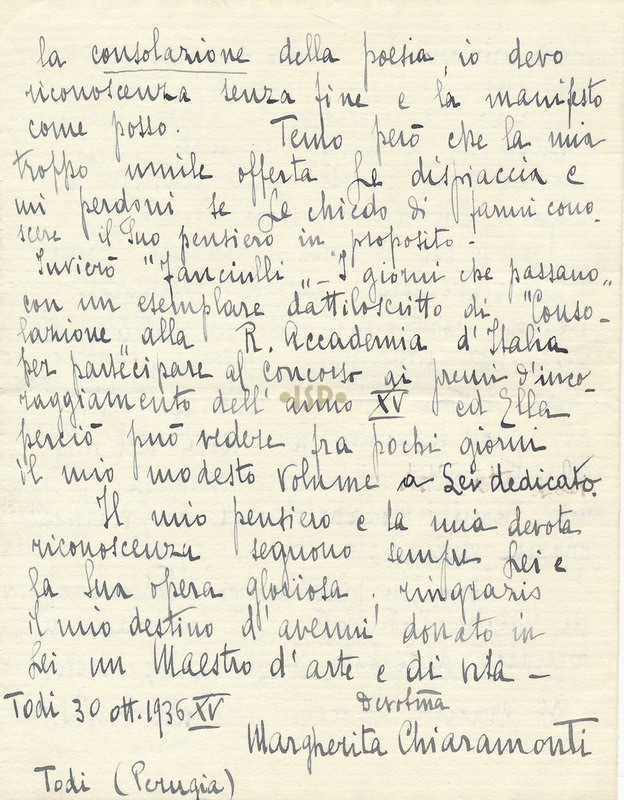 la consolazione della poesia, io devo
riconoscenza senza fine e la manifesto
come posso. Temo però che la mia
troppo umile offerta Le dispiaccia e
mi perdoni se Le chiedo di farmi cono-
scere il Suo pensiero in proposito -
Invierò "Fanciulli" - "I giorni che passano"
con un esemplare dattiloscritto di "Conso-
lazione" alla R. Accademia d'Italia
per partecipare al concorso ai premi d'inco-
raggiamento dell'anno XV ed Ella
perciò può vedere fra pochi giorni
il mio modesto volume a Lei dedicato.
Il mio pensiero e la mia devota
riconoscenza seguono sempre Lei e
la Sua opera gloriosa: ringrazio
il mio destino d'avermi donato in
Lei un Maestro d'arte e di vita -
Todi 30 ott. 1936 XV
Devotma
Margherita Chiaramonti
Todi (Perugia)
ISP